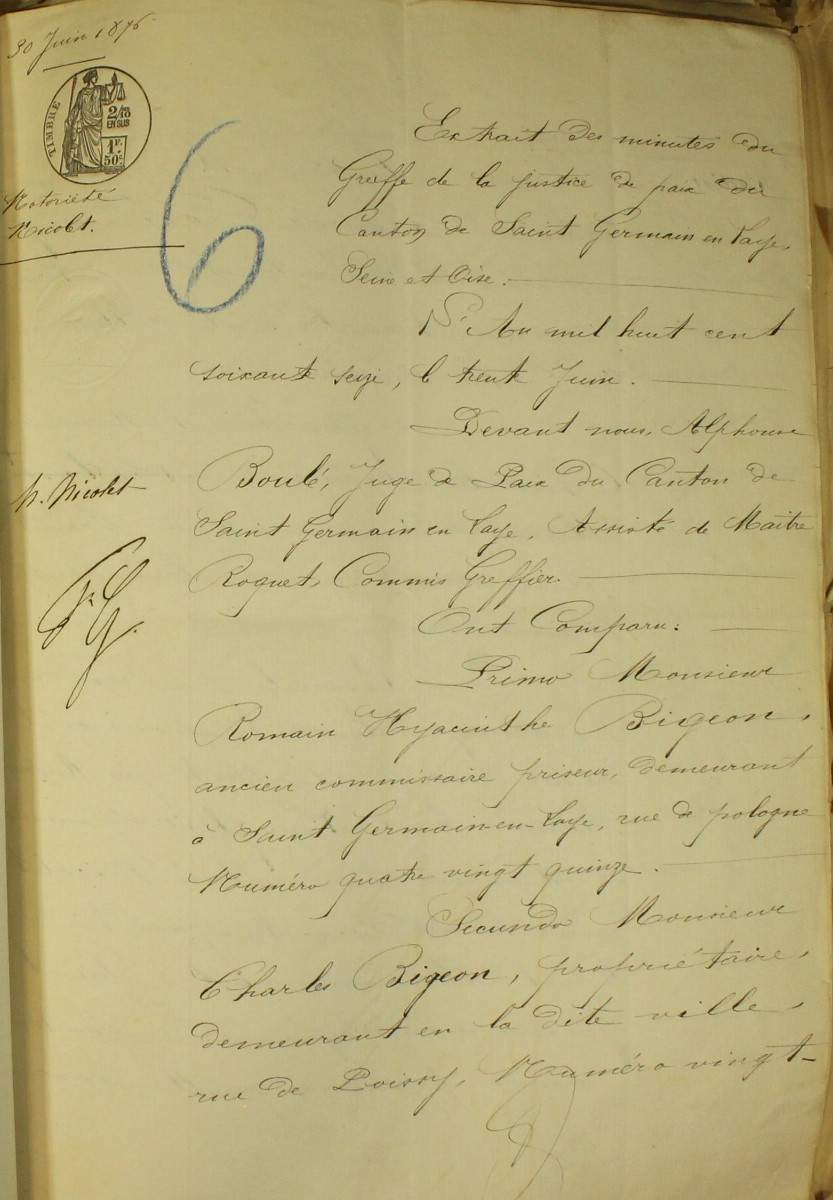 30 Juin 1876
TIMBRE
2/10
EN SUS
1F.
50c
6
Notoriété
Nicolet.
Extrait des minutes du
Greffe de la justice de paix du
Canton de Saint Germain en Laye,
Seine et Oise.
L'An mil huit cent
soixante seize, le trente Juin.
Devant nous, Alphonse
Boulé, Juge de Paix du Canton de
Saint Germain en Laye, Assisté de Maître
Roguet, Commis Greffier.
N. Nicolet
Ont Comparu:
Primo Monsieur
Romain Hyacinthe Bigeon,
ancien commissaire priseur, demeurant
à Saint Germain-en-Laye, rue de pologne
Numéro quatre vingt quinze.
Secundo Monsieur
Charles Bigeon, propriétaire,
demeurant en la dite ville,
rue de Poissy, Numéro vingt-